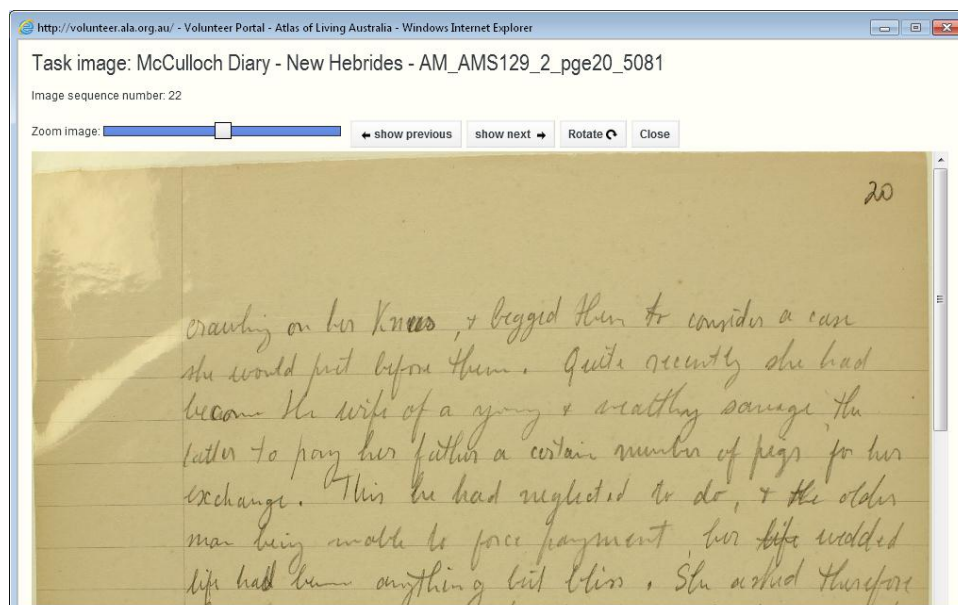 http://volunteer.ala.org.au/ - Volunteer Portal - Atlas of Living Australia - Windows Internet Explorer
Task image: McCulloch Diary - New Hebrides - AM_AMS129_2_pge20_5081
Image sequence number: 22
Zoom image: show previous show next Rotate Close
20
crawling on her Knees, & begged them to consider a case
she would put before them. Quite recently she had
become the wife of a young & wealthy savage the
latter to pay her father a certain number of pegs for her
exchange. This he had neglected to do, & the older
man being unable to force payment, her life wedded
life had been anything but bliss. She asked therefore